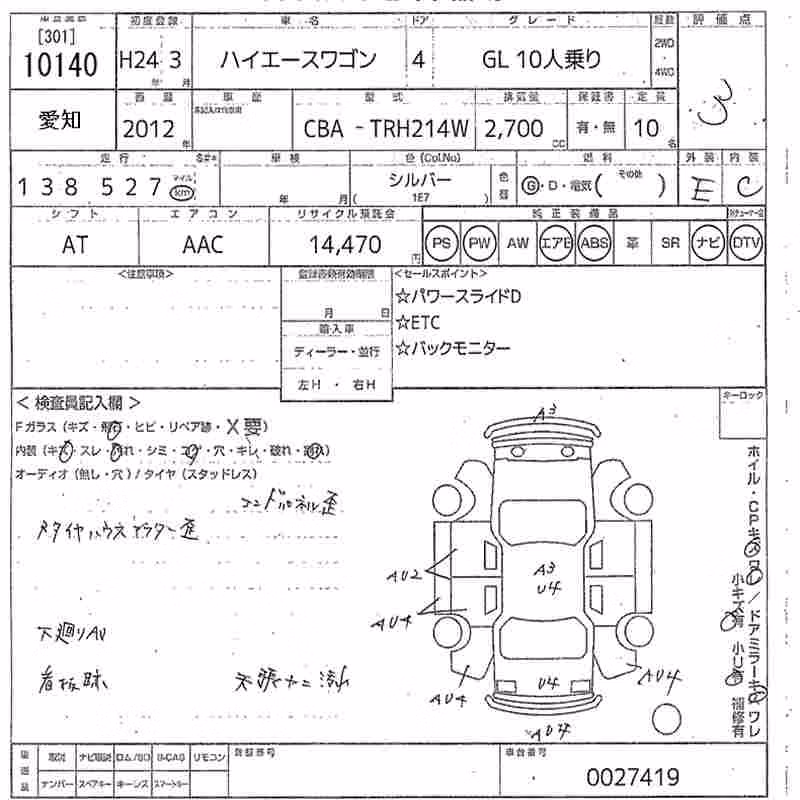 [301]
10140
初度登録
H24 3
年 月
車名
ハイエースワゴン
ドア
4
グレード
GL 10人乗り
2WD
4WD
評価点
愛知
西暦
2012 年
車歴
型式
CBA - TRH214W
排気量
2,700 cc
保証書
有・無
定員
10 名
走行
138527
マイル
km
車検
年 月
色(Col.No)
シルバー
(1E7 )
燃料
G・D・電気( その他 )
外装
E
内装
C
シフト
AT
エアコン
AAC
リサイクル預託金
14,470 円
純正装備品
PS PW AW エアB ABS 革 SR ナビ DTV
<注意事項>
月 日
輸入車
ディーラー・並行
左H ・ 右H
<セールスポイント>
☆パワースライドD
☆ETC
☆バックモニター
<検査員記入欄>
キーロック
Fガラス(キズ・飛石・ヒビ・リペア跡・X要)
内装(キズ・スレ・汚れ・シミ・コゲ・穴・キレ・破れ・濡れ)
オーディオ(無し・穴)/タイヤ(スタッドレス)
コンドパネル歪
スタイヤハウスアウター歪
下廻りAU
看板跡
A3
AU2
A3
U4
AU4
AU4
U4
AU4
AU4
ホイル・CPキズワレ/ドアミラーキズワレ
小キズ有 小U有 補修有
取説 ナビ取説 ロム/SD B-CAS リモコン
ナンバー スペアキー キーレス スマートキー
登録番号
車台番号
0027419